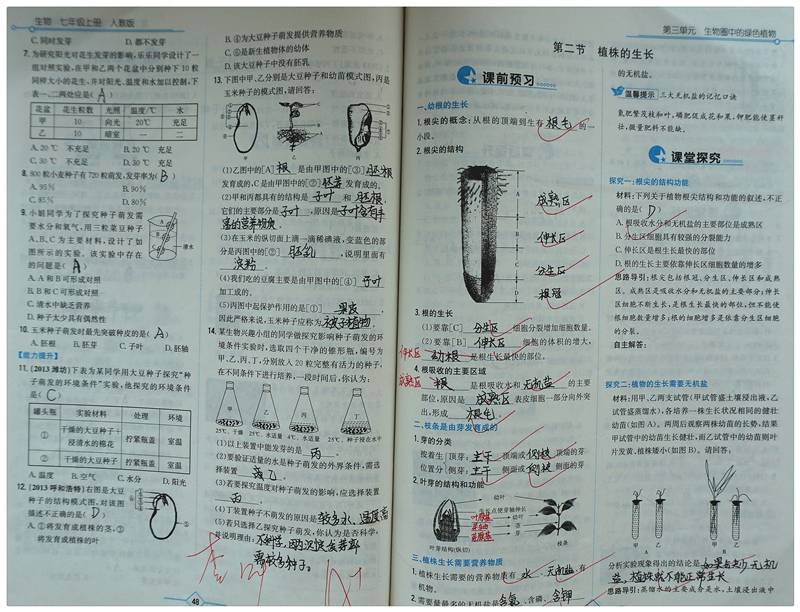 生物 七年级上册 人教版
C. 同时发芽 D. 都不发芽
7. 为研究阳光对花生发芽的影响,乐乐同学设计了一
组对照实验,在甲和乙两个花盆中分别种下10粒
同样大小的花生,并对阳光、温度和水加以控制,下
表一、二两处应是( A )
花盆 花生粒数 光照 温度/℃ 水
甲 10 向光 20℃ 充足
乙 10 暗室 一 二
A. 20℃ 不充足 B. 20℃ 充足
C. 30℃ 不充足 D. 30℃ 充足
8. 800粒小麦种子有720粒萌发,发芽率为( B )
A. 95% B. 90%
C. 85% D. 80%
9. 小娟同学为了探究种子萌发需
要水分和氧气,用三粒菜豆种子
A、B、C为主要材料,设计了如
图所示的实验。该实验中存在
的问题是( A )
清水
A. A和B可形成对照
B. B和C可形成对照
C. 清水中缺乏营养
D. 种子太少具有偶然性
10. 玉米种子萌发时最先突破种皮的是( A )
A. 胚根 B. 胚芽 C. 子叶 D. 胚轴
【能力提升】
11. (2013 潍坊)下表为某同学用大豆种子探究“种
子萌发的环境条件”实验,他探究的环境条件
是( C )
罐头瓶 实验材料 处理 环境
① 干燥的大豆种子+浸清水的棉花 拧紧瓶盖 室温
② 干燥的大豆种子 拧紧瓶盖 室温
A. 温度 B. 空气 C. 水分 D. 阳光
12. (2013 呼和浩特)右图是大豆
种子的结构模式图,对该图
描述不正确的是( D )
A. ②将发育成植株的茎,③
将发育成植株的叶
48
B. ④为大豆种子萌发提供营养物质
C. ⑥是新生植物体的幼体
D. 该大豆种子中没有胚乳
13. 下图中甲、乙分别是大豆种子和幼苗模式图,丙是
玉米种子的模式图,请回答:
甲 乙 丙
(1)乙图中的[A] 根 是由甲图中的[③] 胚根
发育成的,C是由甲图中的[②] 胚芽 发育成的。
(2)甲和丙都具有的结构是 子叶 和 胚根,
它们的主要部分是 子叶,原因是 子叶含有丰
富的营养物质
(3)在玉米的纵切面上滴一滴稀碘液,变蓝色的部
分是丙图中的[②] 胚乳,说明里面有
淀粉。
(4)我们吃的豆腐主要是由甲图中的[④] 子叶
加工成的。
(5)丙图中起保护作用的是[①] 果皮,
因此严格来说,玉米种子应称为
14. 某生物兴趣小组的同学做探究影响种子萌发的环
境条件实验时,选取四个干净的锥形瓶,编号为
甲、乙、丙、丁,分别放入20粒完整有活力的种子,
在不同条件下进行培养,一段时间后,你认为:
甲 乙 丙 丁
25℃、干燥 25℃、水适量 4℃、水适量 25℃、种子浸在水中
(1)以上装置中能发芽的是 丙。
(2)要验证适量的水是种子萌发的外界条件,需选
择装置 甲乙。
(3)若要探究温度对种子萌发的影响,应选择装置
丙。
(4)丁装置种子不萌发的原因是
(5)若只选择乙探究种子萌发,你认为是否科学,
并说明理由:
第三单元 生物圈中的绿色植物
第二节 植株的生长
课前预习
一、幼根的生长
1. 根尖的概念:从根的顶端到生有 根毛 的一
小段。
2. 根尖的结构
A
B
C
D
成熟区
伸长区
分生区
根冠
3. 根的生长
(1)要靠[C] 分生区 细胞分裂增加细胞数量。
(2)要靠[B] 伸长区 细胞的体积的增大,
伸长区 幼根 是根生长最快的部位。
4. 根吸收的主要区域
成熟区 根 是根吸收水和 无机盐 的主要
部位,原因是 成熟区 表皮细胞一部分向外突
出,形成 根毛。
二、枝条是由芽发育成的
1. 芽的分类
按着生 顶芽:主干 顶端或 侧枝 顶端的芽
位置分 侧芽:主干 侧面或 侧枝 侧面的芽
2. 叶芽的结构和功能
幼叶
生长点使芽轴伸长
幼叶 叶
芽轴 茎
芽原基 芽
叶芽结构(纵切) 枝条
三、植株生长需要营养物质
1. 植株生长需要的营养物质有 水、无机盐、有
机物。
2. 需要量最多的无机盐是 含氮、含磷、含钾
的无机盐。
温馨提示 三大无机盐的记忆口诀
氮肥繁发枝和叶,磷肥促成花和果,钾肥能使茎秆
壮,微量肥料不能缺。
课堂探究
探究一:根尖的结构功能
材料:下列关于植物根尖结构和功能的叙述,不正
确的是( D )
A. 根吸收水分和无机盐的主要部位是成熟区
B. 分生区细胞具有较强的分裂能力
C. 伸长区是根生长最快的部位
D. 根的生长主要依靠伸长区细胞数量的增多
思路导引:根尖包括根冠、分生区、伸长区和成熟
区。成熟区是吸收水分和无机盐的主要部分;伸长
区细胞不断生长,是根生长最快的部位,但不能使
根细胞数量增多;根的细胞增多是依靠分生区细胞
的分裂。
自主解答:
探究二:植物的生长需要无机盐
材料:用甲、乙两支试管(甲试管盛土壤浸出液,乙
试管盛蒸馏水),各培养一株生长状况相同的健壮
幼苗(如图A)。两周后观察两株幼苗的长势,结果
甲试管中的幼苗生长健壮,而乙试管中的幼苗则叶
片发黄,植株矮小(如图B)。请回答:
甲 乙 甲 乙
A B
分析实验现象得出的结论是 如果缺少无机
盐,植株就不能正常生长
思路导引:蒸馏水的主要成分是水,土壤浸出液中